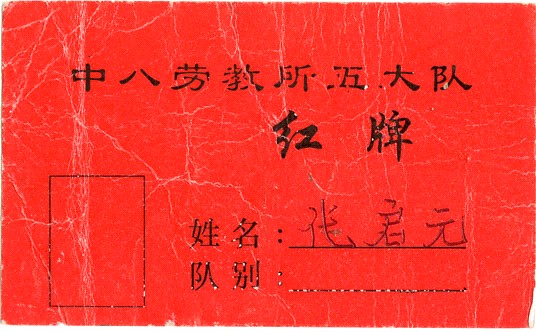 中八劳教所五大队
红牌
姓名：张君元
队别：